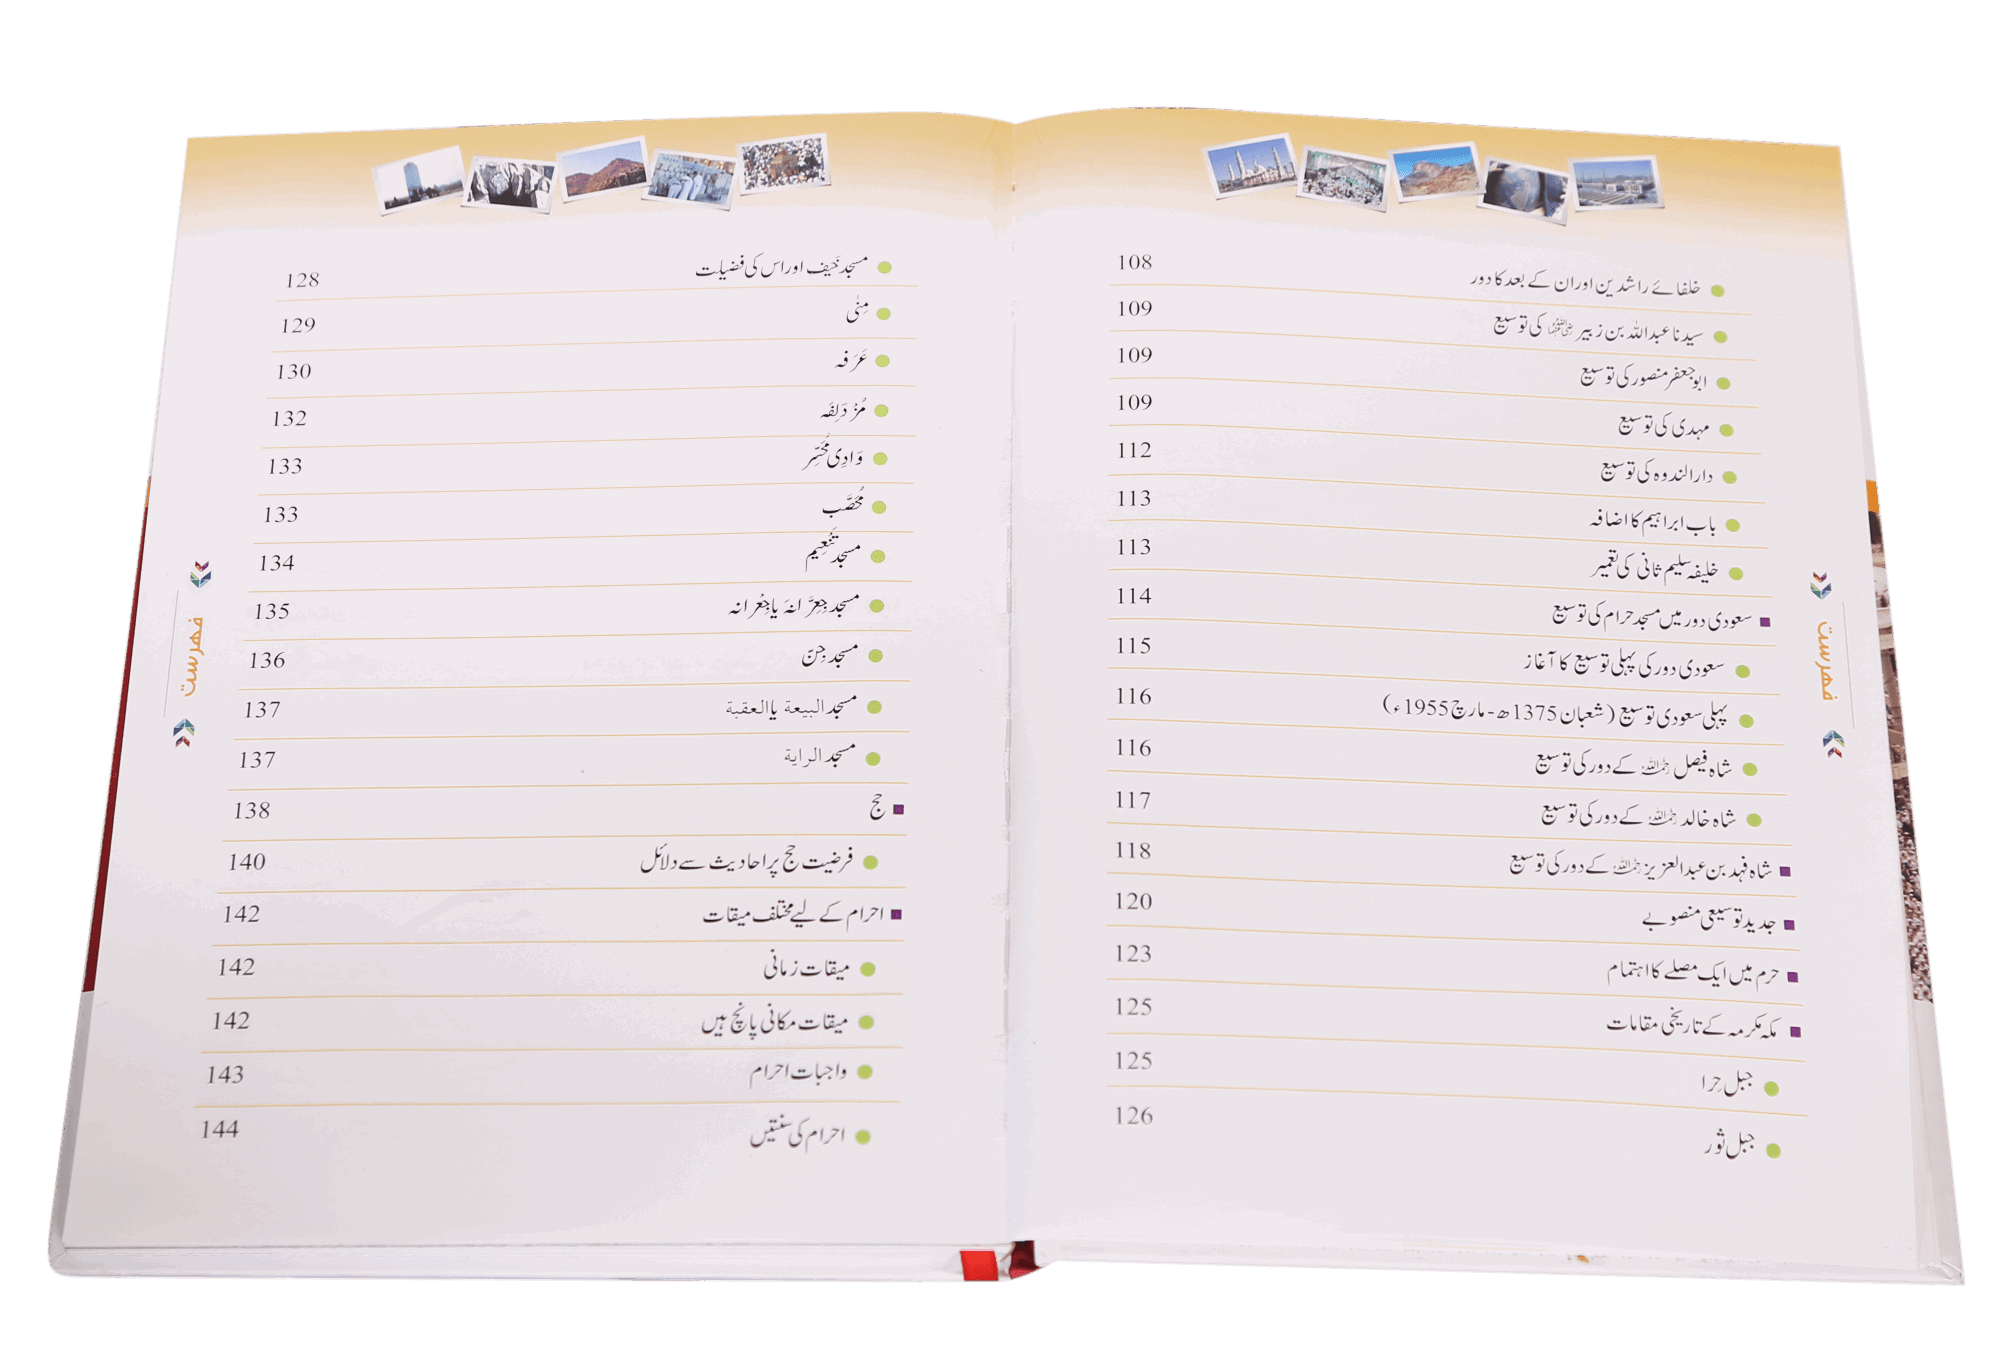 خلفائے راشدین اور ان کے بعد کا دور 108
سیدنا عبداللہ بن زبیر رضی اللہ عنہما کی توسیع 109
ابوجعفر منصور کی توسیع 109
مہدی کی توسیع 109
دارالندوہ کی توسیع 112
باب ابراہیم کا اضافہ 113
خلیفہ سلیم ثانی کی تعمیر 113
سعودی دور میں مسجد حرام کی توسیع 114
سعودی دور کی پہلی توسیع کا آغاز 115
پہلی سعودی توسیع (شعبان 1375ھ - مارچ 1955ء) 116
شاہ فیصل رحمہ اللہ کے دور کی توسیع 116
شاہ خالد رحمہ اللہ کے دور کی توسیع 117
شاہ فہد بن عبدالعزیز رحمہ اللہ کے دور کی توسیع 118
جدید توسیعی منصوبے 120
حرم میں ایک مصلے کا اہتمام 123
مکہ مکرمہ کے تاریخی مقامات 125
جبل حِرا 125
جبل ثور 126
فہرست
مسجد خَیف اور اس کی فضیلت 128
مِنٰی 129
عَرَفہ 130
مُزْدَلِفَہ 132
وَادِی مُحَسِّر 133
مُحَصَّب 133
مسجد تَنْعِیم 134
مسجد جِعِرَّانَہ یا جِعْرانہ 135
مسجد جِنّ 136
مسجد البيعة یا العقبة 137
مسجد الراية 137
حج 138
فرضیت حج پر احادیث سے دلائل 140
احرام کے لیے مختلف میقات 142
میقات زمانی 142
میقات مکانی پانچ ہیں 142
واجبات احرام 143
احرام کی سنتیں 144
فہرست